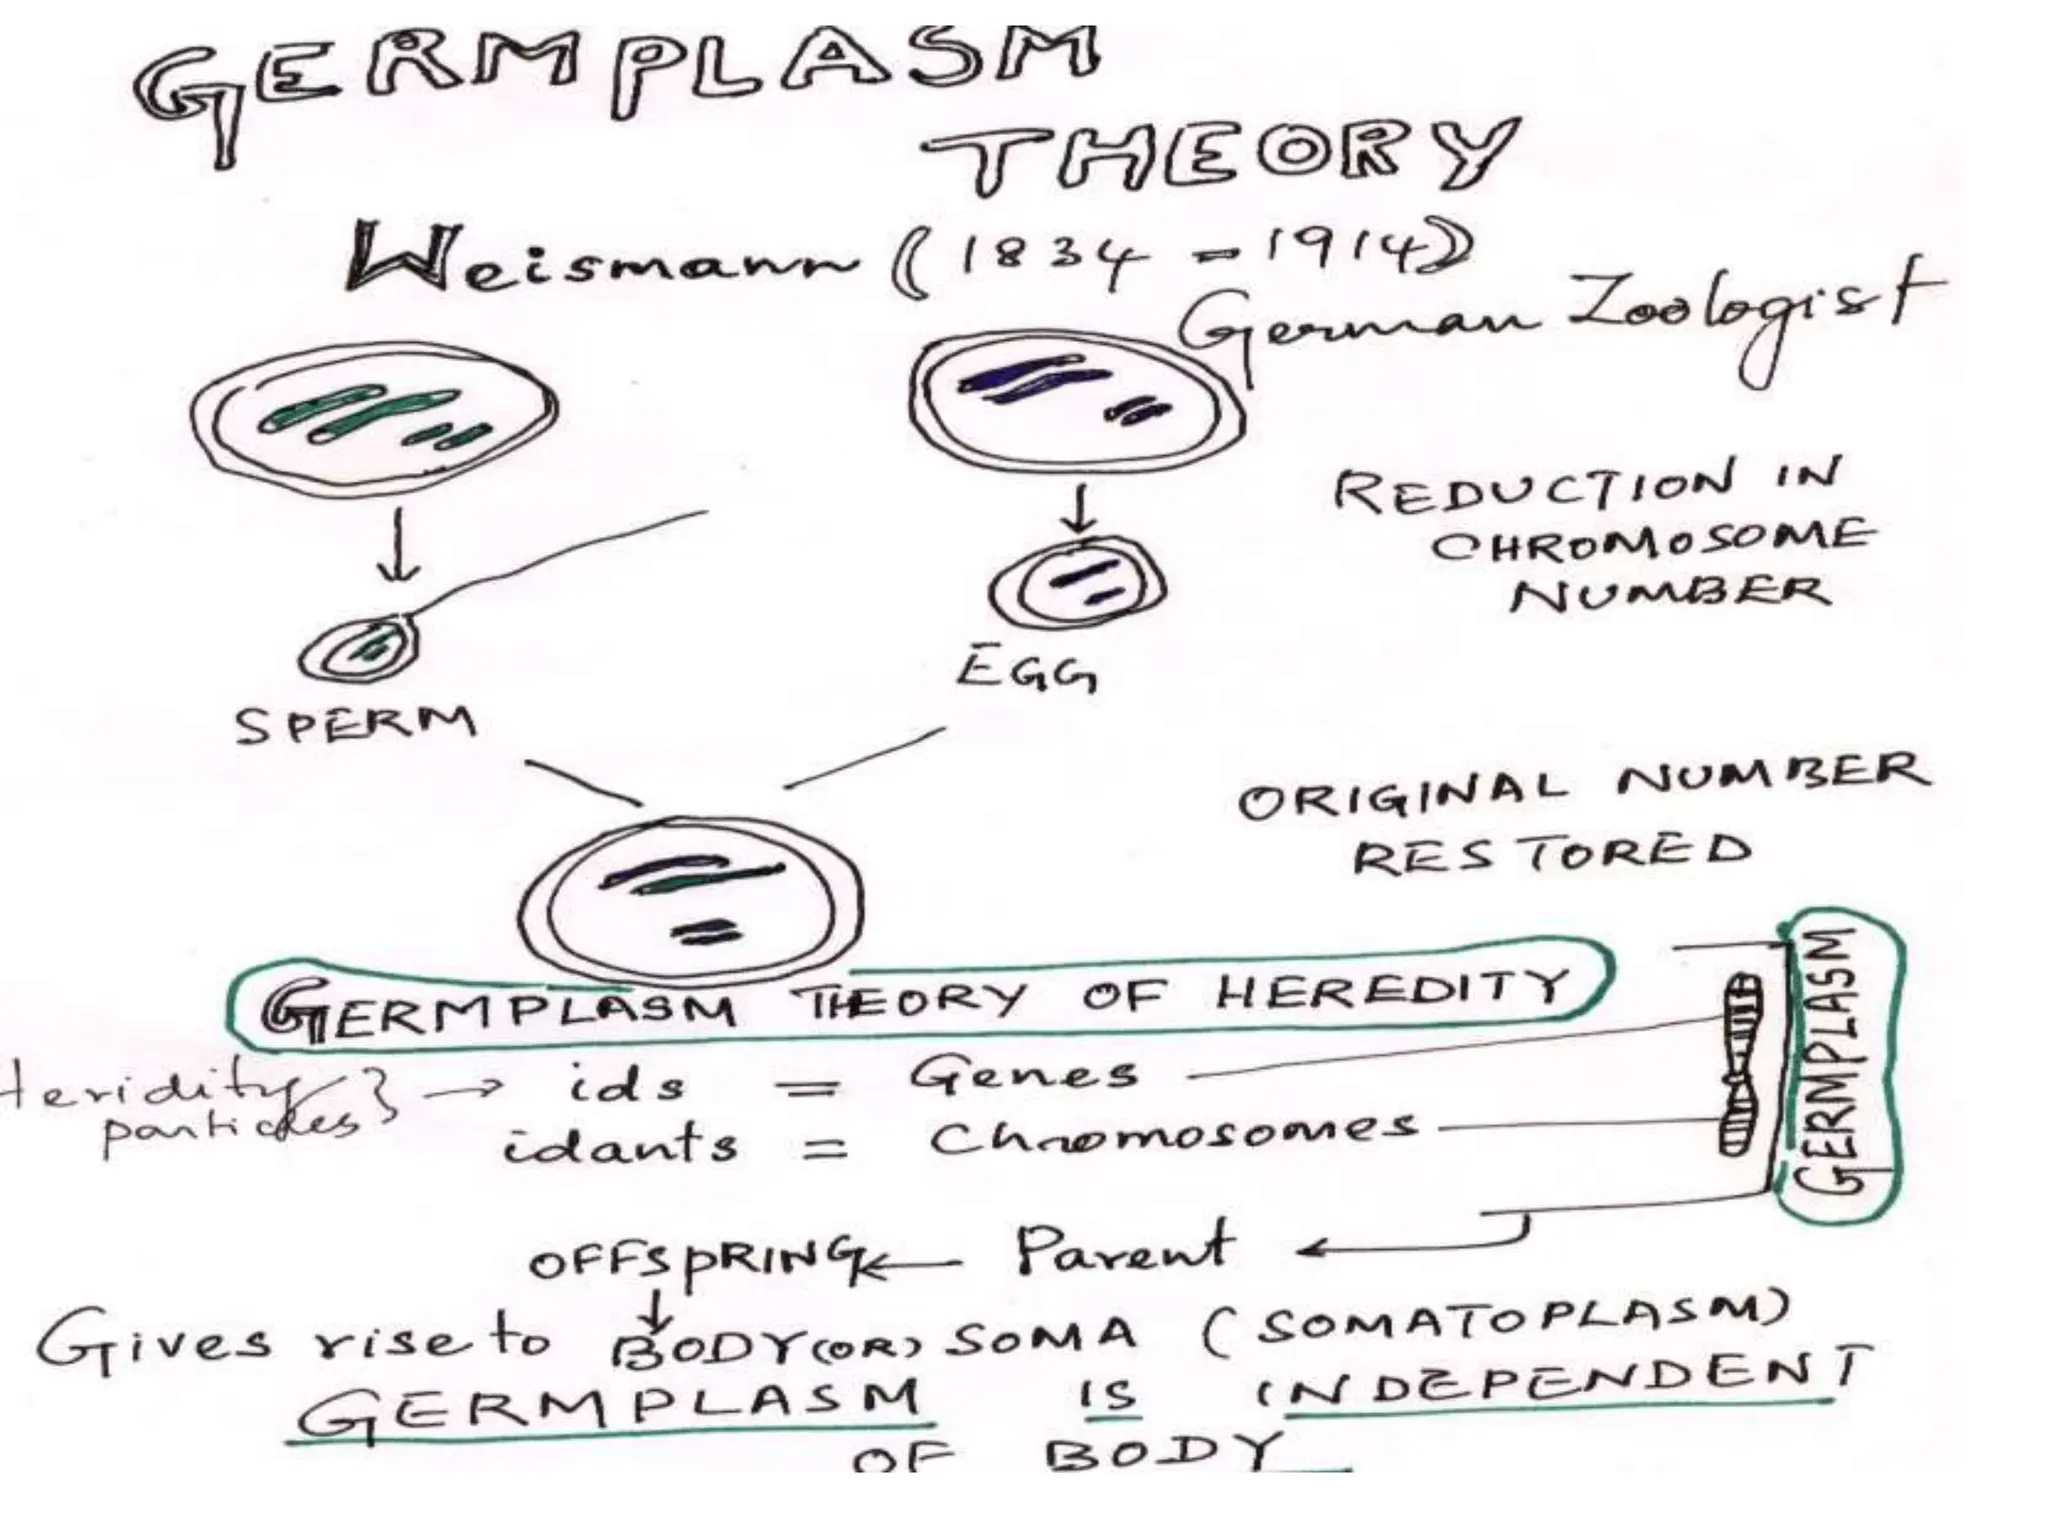 GERMPLASM
THEORY
Weismann (1834 - 1914)
German Zoologist
REDUCTION IN
CHROMOSOME
NUMBER
EGG
SPERM
ORIGINAL NUMBER
RESTORED
GERMPLASM THEORY OF HEREDITY
GERMPLASM
teridity } → ids = Genes
particles
idants = Chromosomes
OFFSPRING ← Parent ←
↓
Gives rise to BODY (OR) SOMA (SOMATOPLASM)
GERMPLASM IS INDEPENDENT
OF BODY